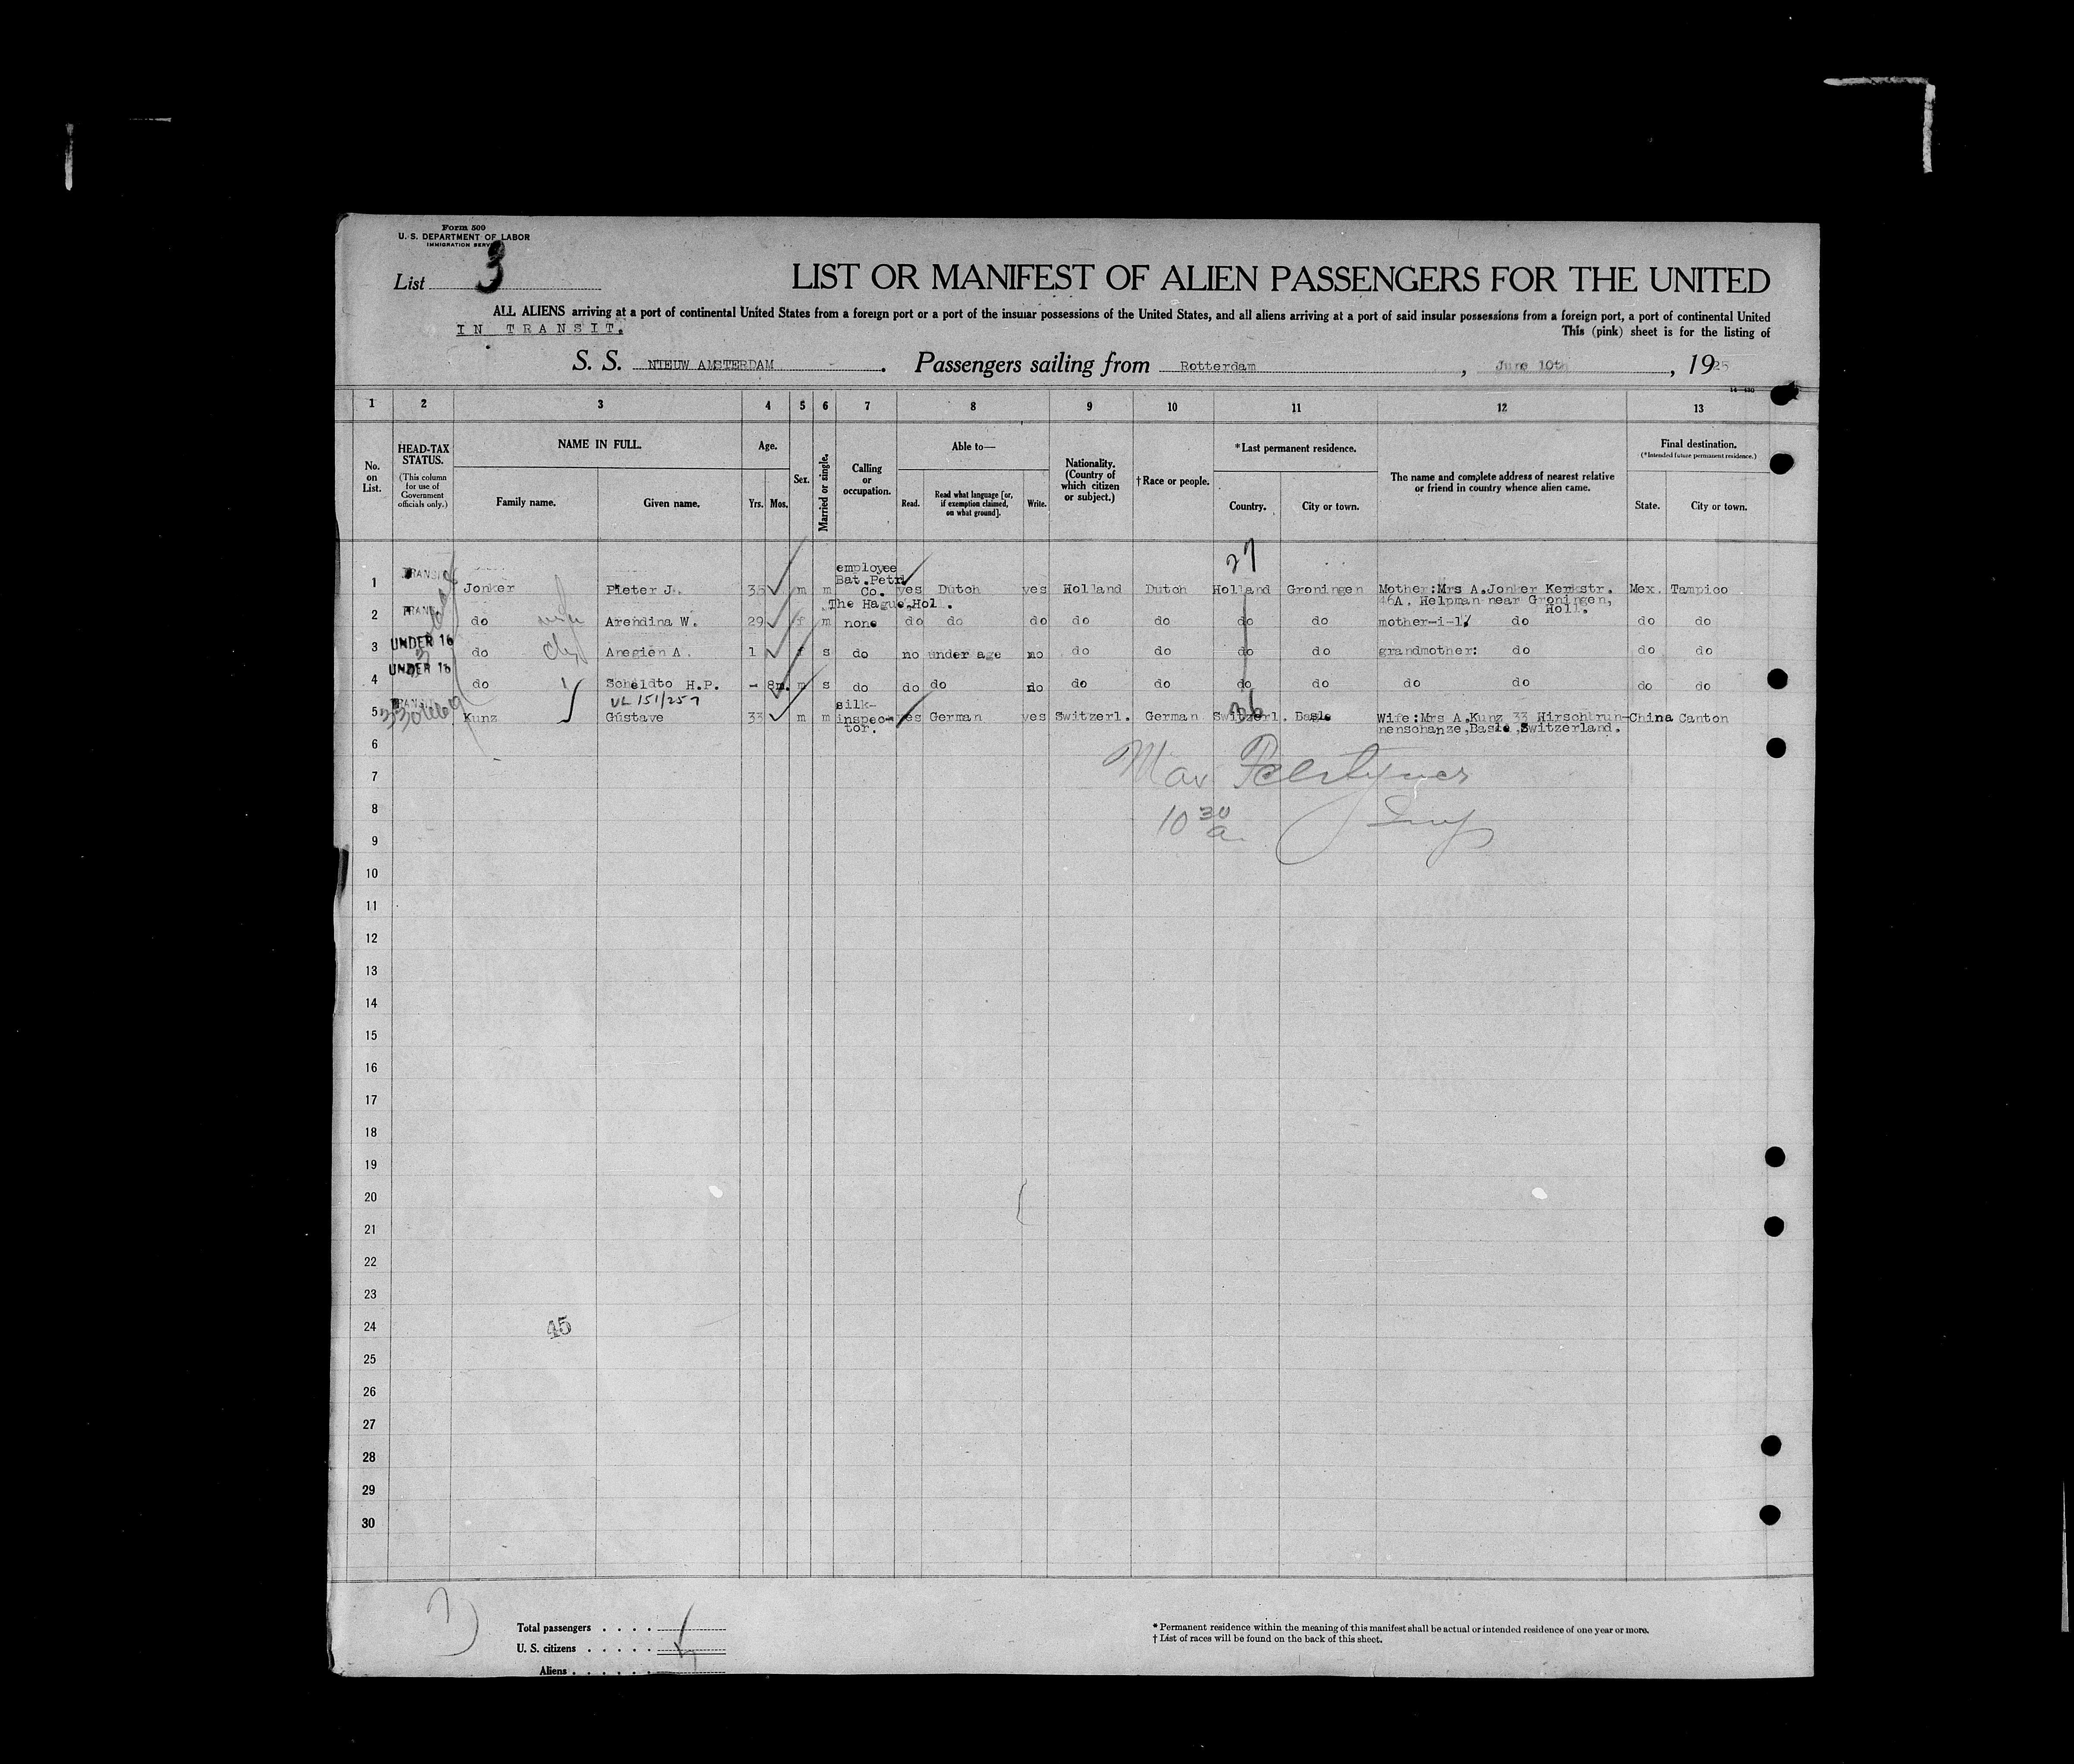 Form 500
U. S. DEPARTMENT OF LABOR
IMMIGRATION SERVICE
List 3
LIST OR MANIFEST OF ALIEN PASSENGERS FOR THE UNITED
ALL ALIENS arriving at a port of continental United States from a foreign port or a port of the insular possessions of the United States, and all aliens arriving at a port of said insular possessions from a foreign port, a port of continental United
IN TRANSIT.
This (pink) sheet is for the listing of
S. S. NIEUW AMSTERDAM. Passengers sailing from Rotterdam, June 10th, 1925
1 2 3 4 5 6 7 8 9 10 11 12 13
No. on List.
HEAD-TAX STATUS.
(This column for use of Government officials only.)
NAME IN FULL.
Family name. Given name.
Age.
Yrs. Mos.
Sex.
Married or single.
Calling or occupation.
Able to—
Read. Read what language [or, if exemption claimed, on what ground]. Write.
Nationality. (Country of which citizen or subject.)
†Race or people.
*Last permanent residence.
Country. City or town.
The name and complete address of nearest relative or friend in country whence alien came.
Final destination.
(*Intended future permanent residence.)
State. City or town.
27
1 TRANSIT Jonker Pieter J. 35 m m employee Bat.Petr. Co. The Hague,Hol. yes Dutch yes Holland Dutch Holland Groningen Mother:Mrs A.Jonker Kerkstr. 46A. Helpman near Groningen, Holl. Mex. Tampico
2 TRANS do wife Arendina W. 29 f m none do do do do do do do mother-i-l. do do do
3 UNDER 16 do Anegien A. 1 f s do no under age no do do do do grandmother: do do do
4 UNDER 16 do Scheldto H.P. - 8m. m s do do do do do do do do do do do do
VL 151/257
5 TRANSIT Kunz Gustave 33 m m silk-inspector. yes German yes Switzerl. German Switzerl. Basle Wife:Mrs A.Kunz 33 Hirschbrunnenschanze,Basle,Switzerland. China Canton
26
6
7 Max
8 10 30
9 a.
10
11
12
13
14
15
16
17
18
19
20
21
22
23
24 45
25
26
27
28
29
30
Total passengers . . . .
U. S. citizens . . . . .
Aliens . . . . . .
* Permanent residence within the meaning of this manifest shall be actual or intended residence of one year or more.
† List of races will be found on the back of this sheet.